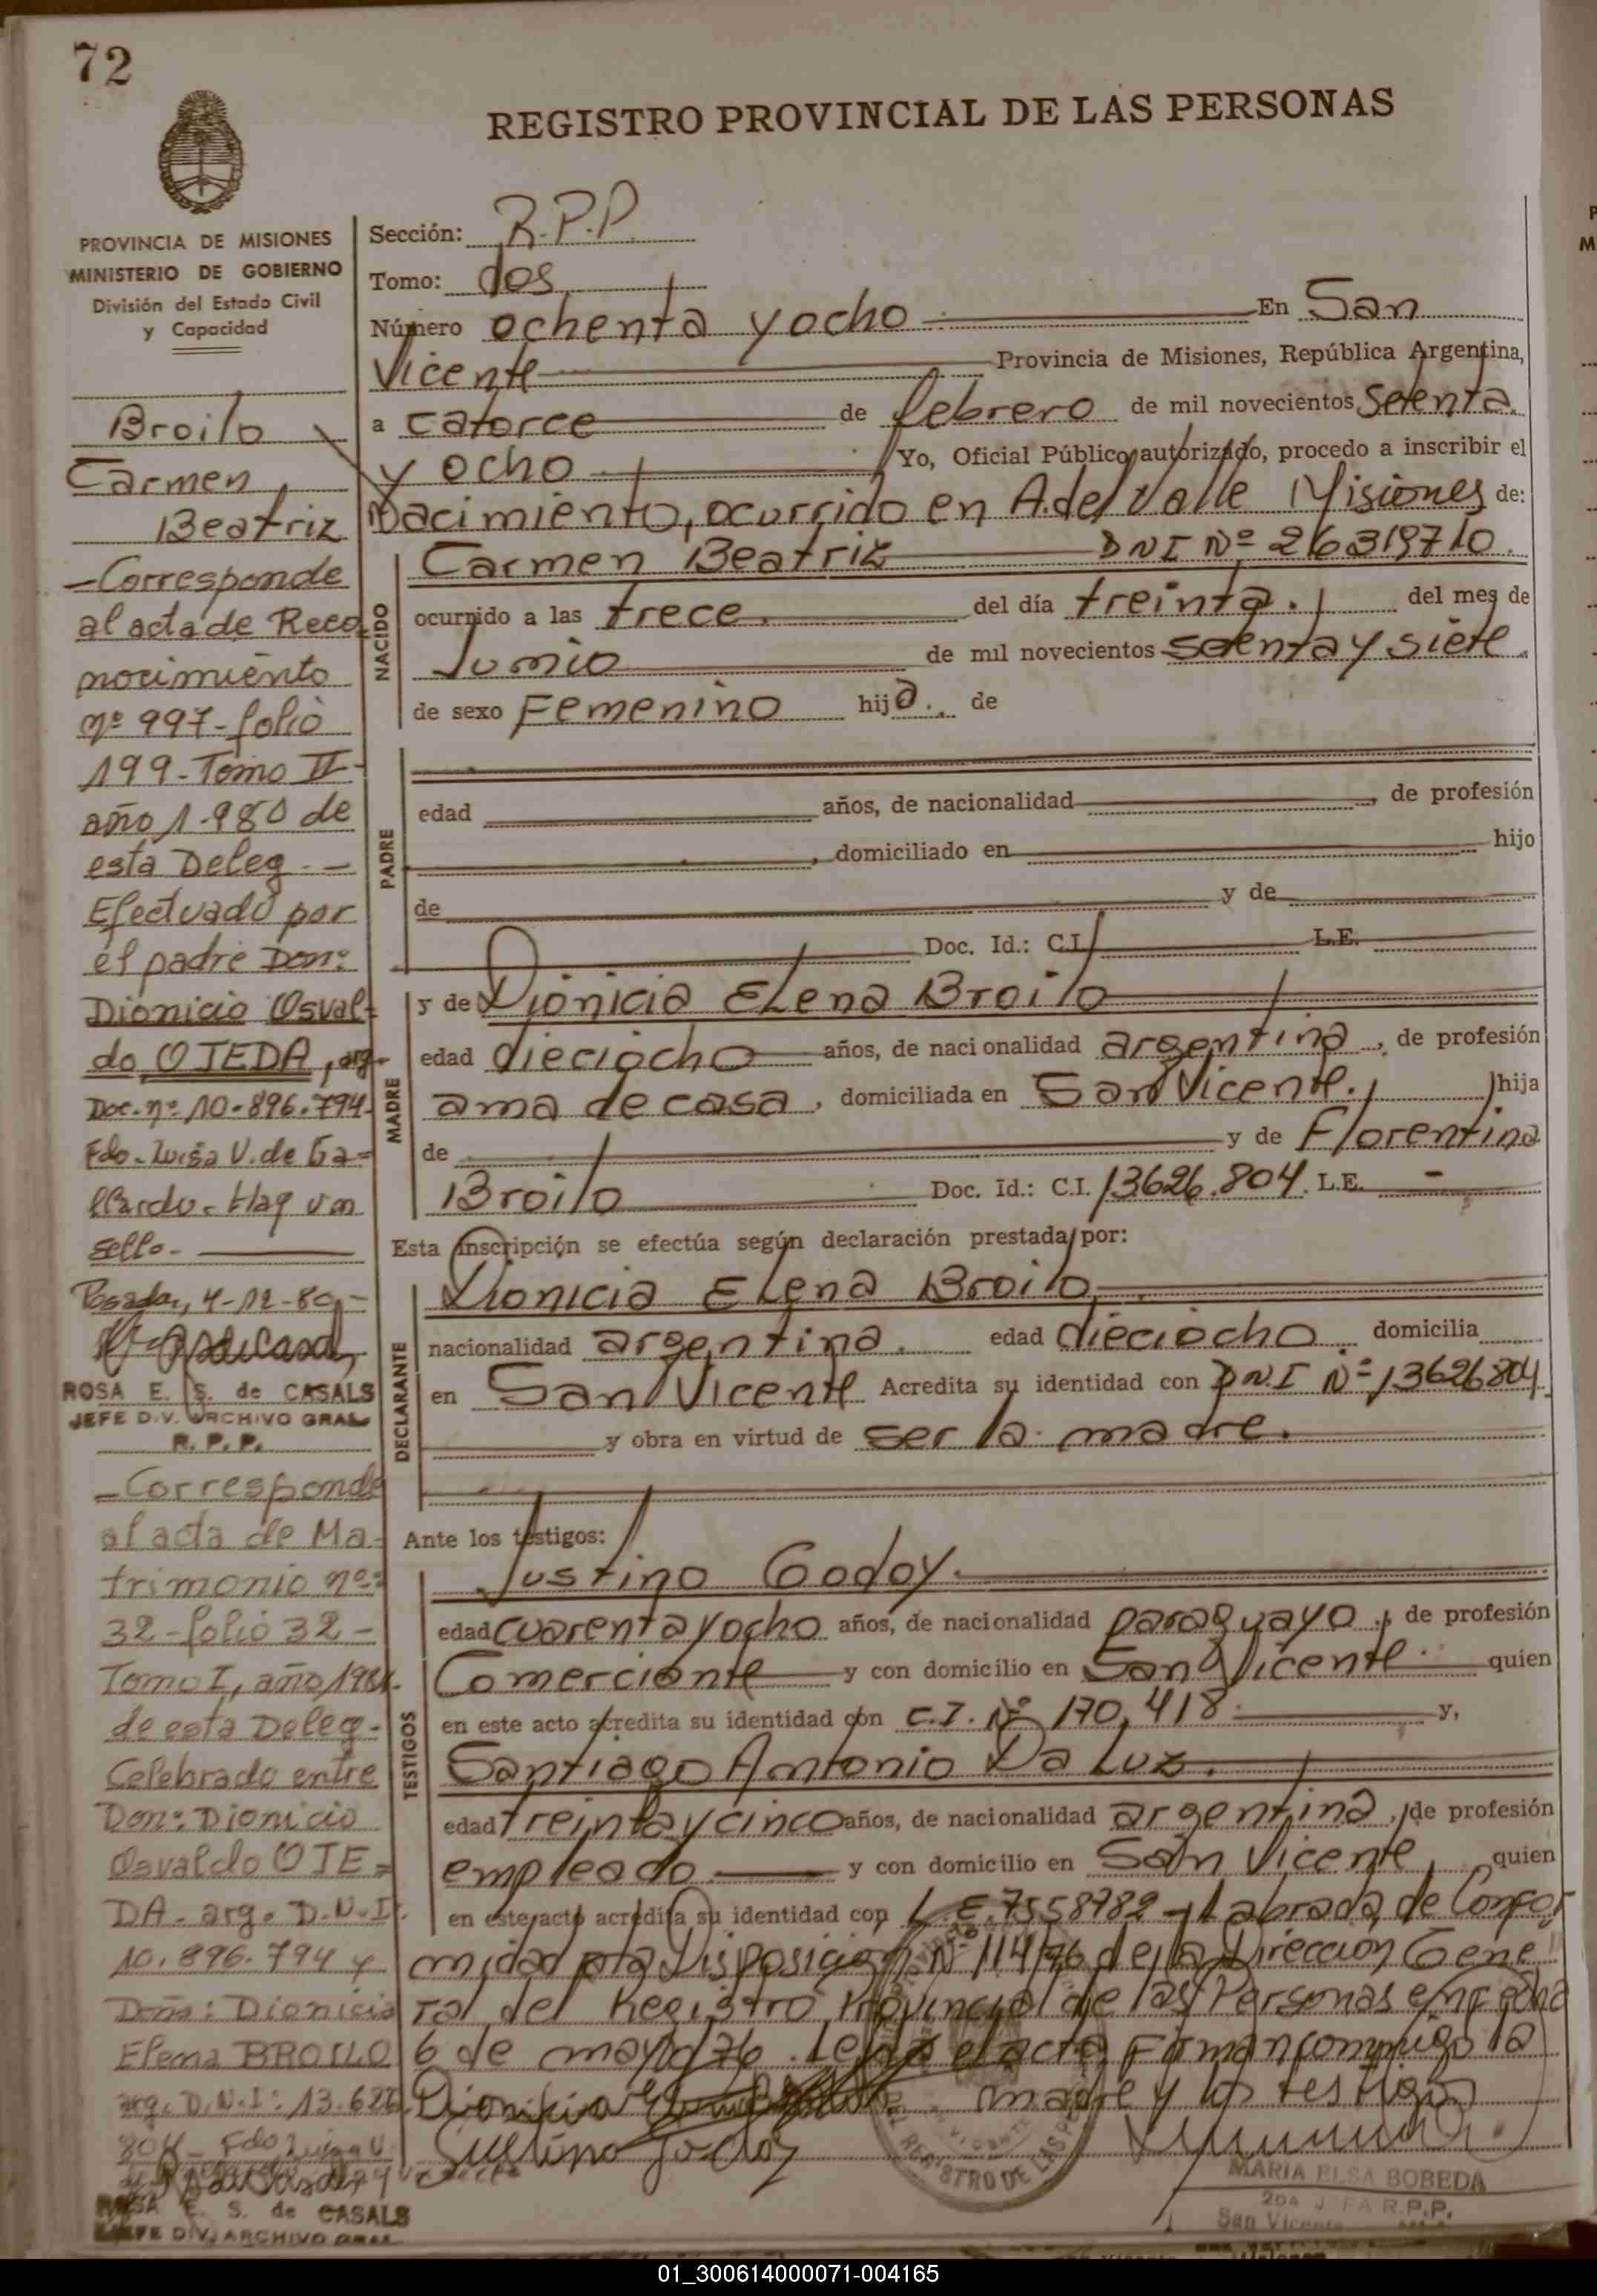 72
REGISTRO PROVINCIAL DE LAS PERSONAS
PROVINCIA DE MISIONES
MINISTERIO DE GOBIERNO
División del Estado Civil
y Capacidad
Broilo
Carmen
Beatriz
-Corresponde
al acta de Reco
nocimiento
nº 997-folio
199-Tomo II-
año 1.980 de
esta Deleg.-
Efectuado por
el padre Don:
Dionicio Osval-
do OJEDA, arg-
Doc. nº 10.896.794-
Fdo- Luisa V. de Ga=
llardo- Hay un
sello-
Posadas, 4-12-80-
ROSA E. S. de CASALS
JEFE DIV. ARCHIVO GRAL
R. P. P.
-Corresponde
al acta de Ma-
trimonio nº:
32-folio 32-
Tomo I, año
de esta Deleg-
Celebrado entre
Don: Dionicio
Osvaldo OJE=
DA- arg- D.N.I.
10.896.794 y
Doña: Dionicia
Elena BROILO
arg. D.N.I: 13.626.
804- Fdo Luisa V.
ROSA E. S. de CASALS
JEFE DIV. ARCHIVO GRAL
Sección: R.P.P.
Tomo: dos
Número ochenta y ocho En San
Vicente Provincia de Misiones, República Argentina,
a catorce de febrero de mil novecientos setenta
y ocho Yo, Oficial Público autorizado, procedo a inscribir el
Nacimiento, ocurrido en A. del Valle Misiones de:
NACIDO
Carmen Beatriz DNI Nº 26319710.
ocurrido a las trece. del día treinta. del mes de
Junio de mil novecientos setenta y siete.
de sexo Femenino hija. de
PADRE
edad años, de nacionalidad , de profesión
, domiciliado en hijo
de y de
Doc. Id.: C.I. L.E.
MADRE
y de Dionicia Elena Broilo
edad dieciocho años, de nacionalidad argentina, de profesión
ama de casa, domiciliada en San Vicente. hija
de y de Florentina
Broilo Doc. Id.: C.I. 13626.804. L.E. -
Esta inscripción se efectúa según declaración prestada por:
DECLARANTE
Dionicia Elena Broilo
nacionalidad argentina. edad dieciocho. domicilia
en San Vicente Acredita su identidad con D.N.I Nº 13626804
y obra en virtud de ser la madre.
Ante los testigos:
TESTIGOS
Justino Godoy.
edad cuarenta y ocho años, de nacionalidad paraguayo, de profesión
Comerciante y con domicilio en San Vicente. quien
en este acto acredita su identidad con C.I. Nº 170.418. y,
Santiago Antonio Da Luz.
edad treinta y cinco años, de nacionalidad argentina, de profesión
empleado. y con domicilio en San Vicente, quien
en este acto acredita su identidad con L.E. 7558782 - Labrada de Confor
midad a la Disposición Nº 114/76 de la Dirección Gene
ral del Registro Provincial de las Personas en fecha
6 de mayo/76. Leída el acta Firman conmigo la
Dionicia madre y los testigos
Justino Godoy
REGISTRO DE LAS
MARIA ELSA BOBEDA
2DA JEFA R.P.P.
San Vicente
01_300614000071-004165